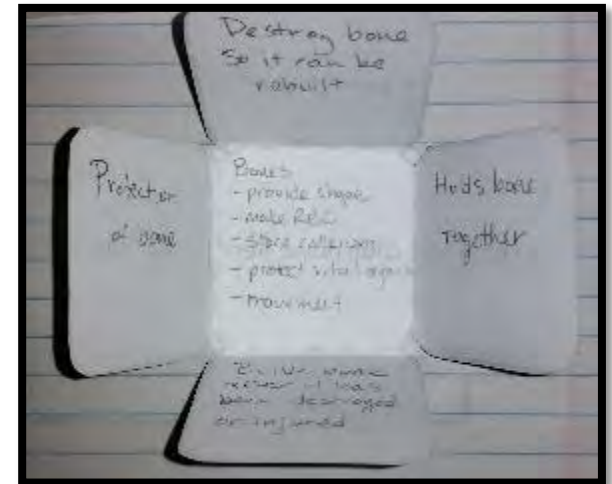 Destroy bone
So it can be
rebuilt
Protector
of bone
Bones
- provide shape
- make RBC
- store calcium
- protect vital organs
- movement
Holds bone
Together
bone
after it has
been damaged
or injured